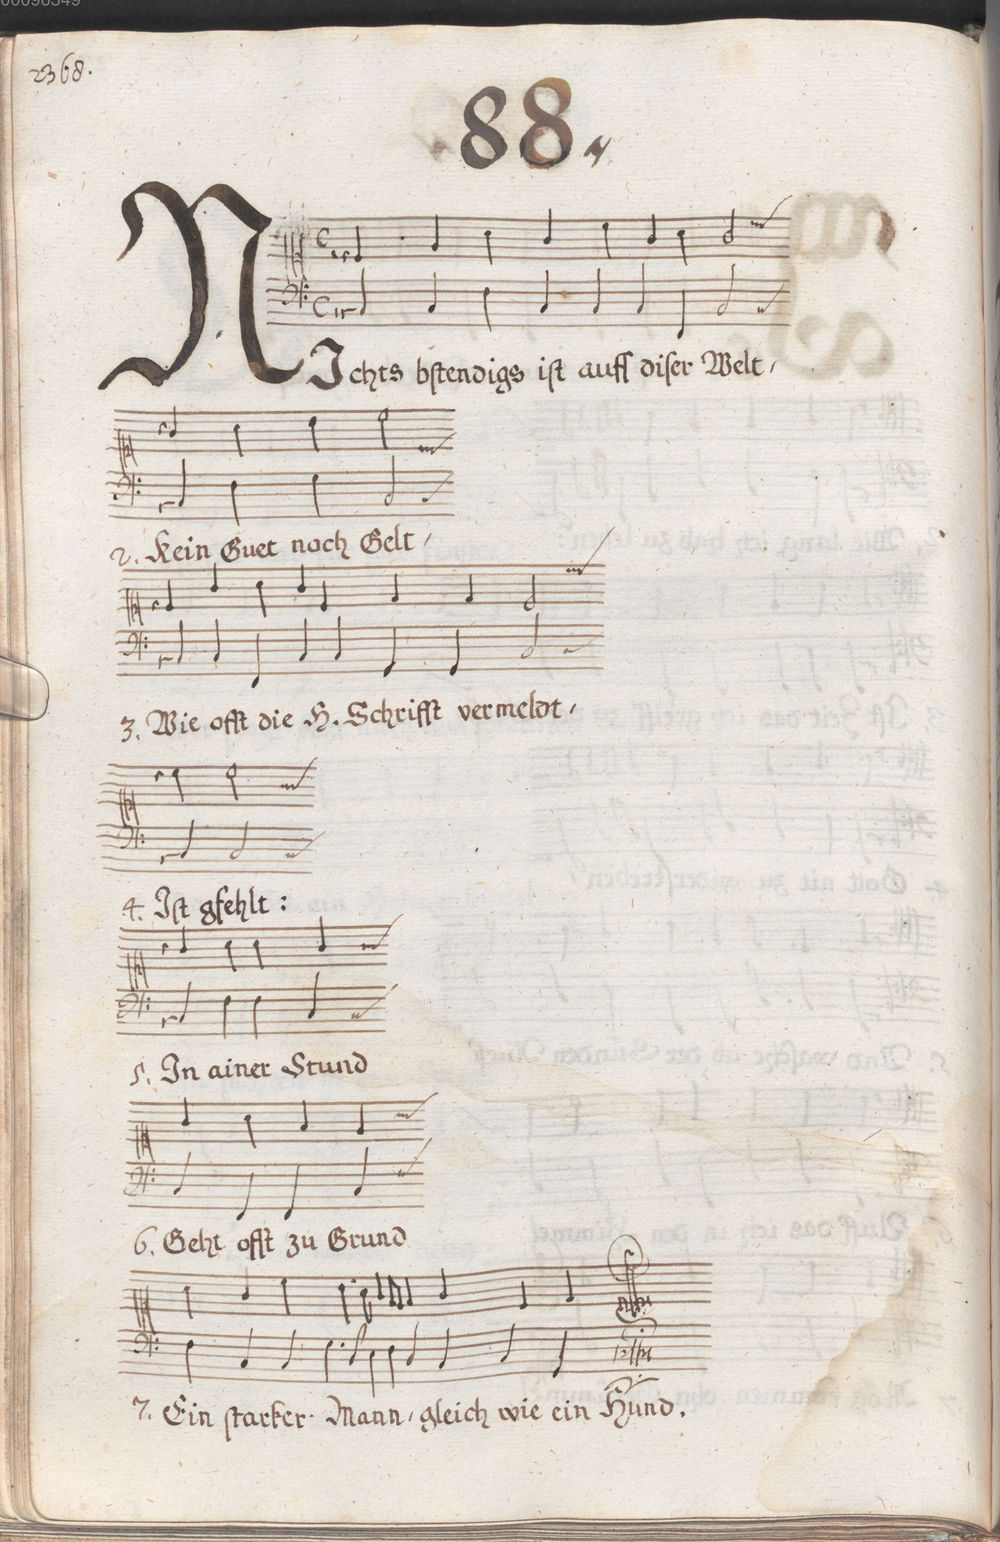 00096549
2368.
88.
NIchts bstendigs ist auff diser Welt,
2. Kein Guet noch Gelt,
3. Wie offt die H. Schrifft vermeldt,
4. Ist gfehlt:
5. In ainer Stund
6. Geht offt zu Grund
7. Ein starker Mann, gleich wie ein Hund.